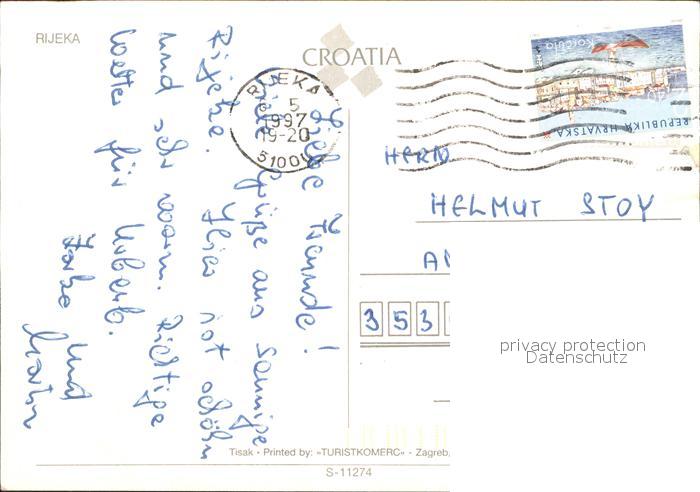 RIJEKA
CROATIA
RIJEKA
5
1997
19-20
51001
Korčula
REPUBLIKA HRVATSKA
Liebe Freunde!
Viele Grüße aus
Rijeka. Hier ist schön
und sehr warm. Richtige
Wetter für Urlaub.
und
Martin
HERRN
HELMUT STOY
353
privacy protection
Datenschutz
Tisak - Printed by: »TURISTKOMERC« - Zagreb,
S-11274